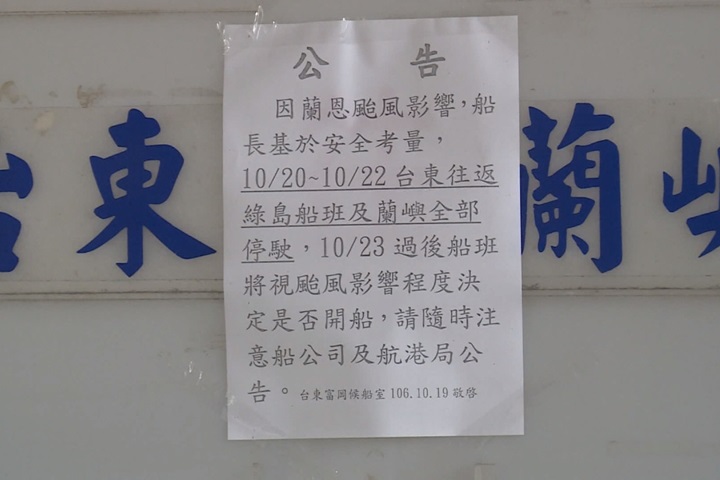 公 告
因蘭恩颱風影響,船
長基於安全考量,
10/20~10/22台東往返
綠島船班及蘭嶼全部
停駛,10/23過後船班
將視颱風影響程度決
定是否開船,請隨時注
意船公司及航港局公
告。台東富岡候船室106.10.19敬啓
台東 蘭嶼